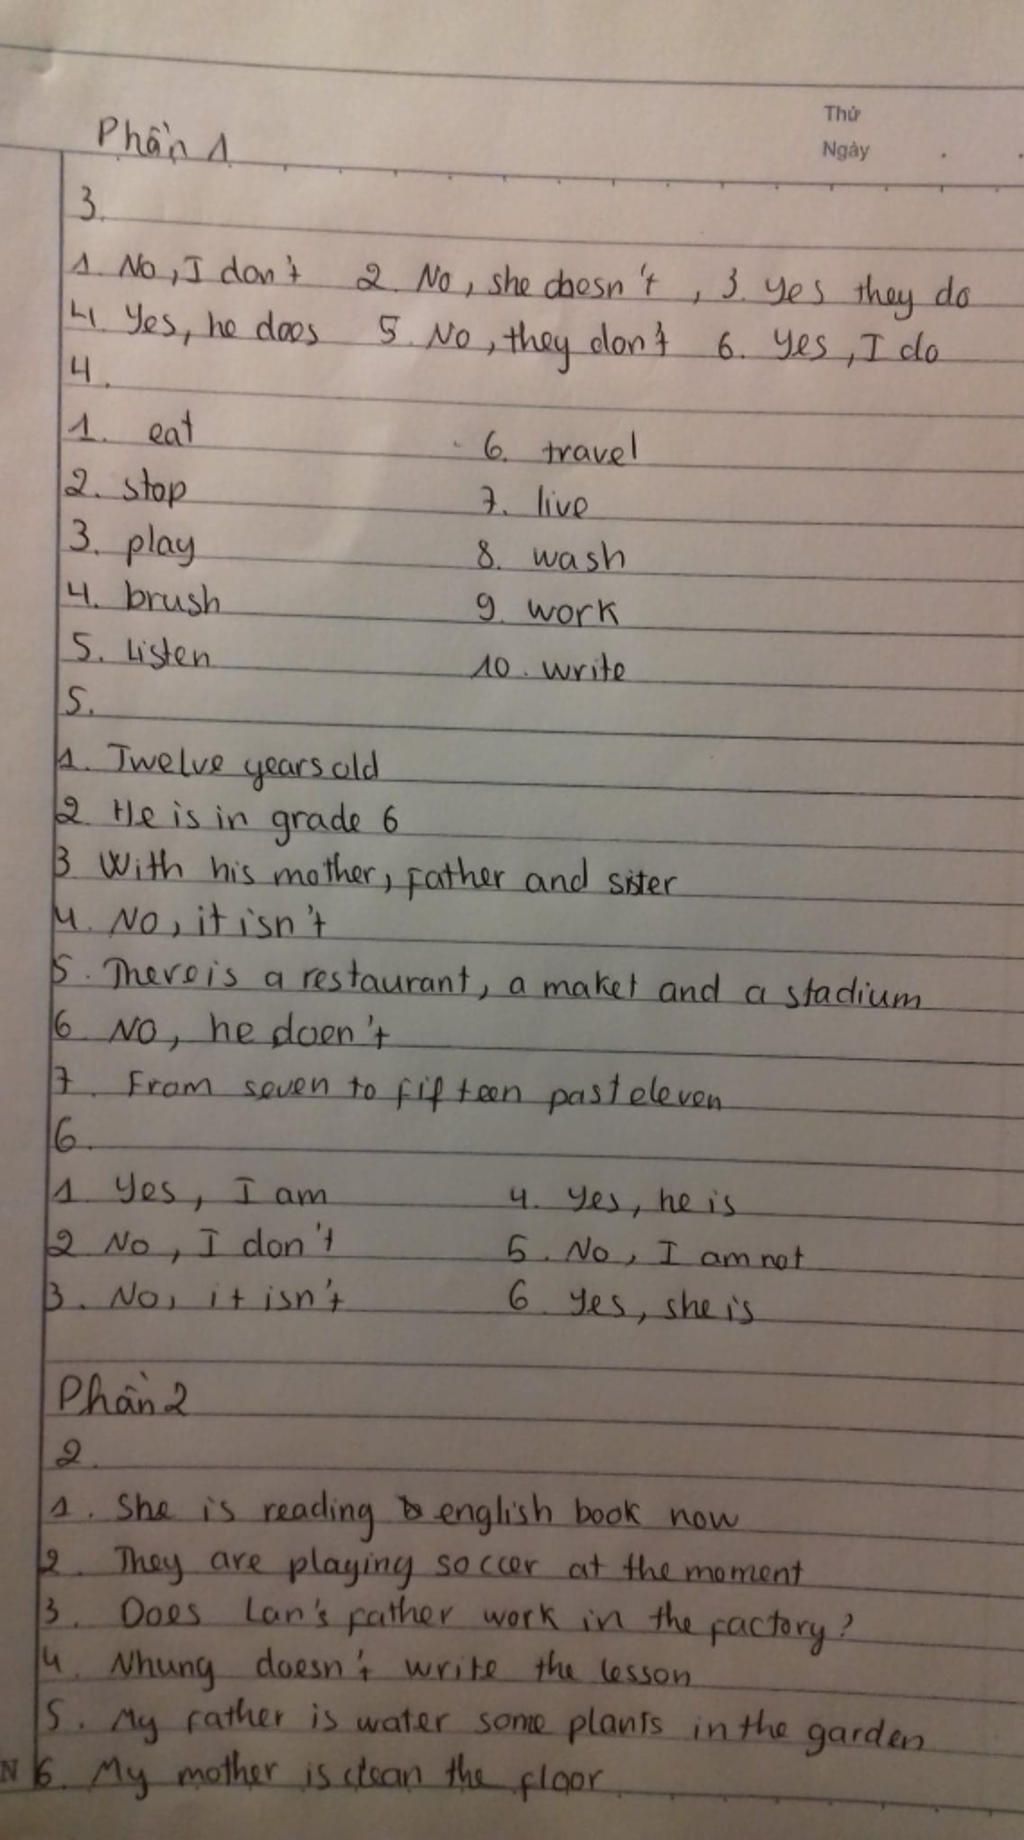 Thứ
Ngày
Phần 1
3.
1. No, I don't 2. No, she doesn't, 3. Yes they do
4. Yes, he does 5. No, they don't 6. Yes, I do
4.
1. eat 6. travel
2. stop 7. live
3. play 8. wash
4. brush 9. work
5. Listen 10. write
5.
1. Twelve years old
2. He is in grade 6
3 With his mother, father and sister
4. No, it isn't
5. There is a restaurant, a maket and a stadium
6. NO, he doen't
7. From seven to fifteen past eleven
6.
1. Yes, I am 4. Yes, he is
2 No, I don't 5. No, I am not
3. No, it isn't 6. Yes, she is
Phần 2
2.
1. She is reading english book now
2. They are playing soccer at the moment
3. Does Lan's father work in the factory?
4. Nhung doesn't write the lesson
5. My father is water some plants in the garden
N 6. My mother is clean the floor